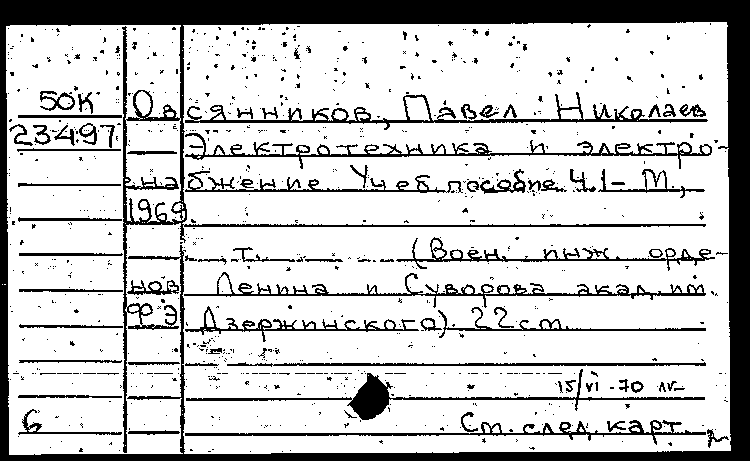 50К Овсянников, Павел Николаев
23497 Электротехника и электро-
снабжение Учеб. пособие Ч.1- М.,
1969.
т. (Воен. инж. орде-
нов Ленина и Суворова акад. им.
Ф Э Дзержинского). 22 см.
15/VI-70
6 См. след. карт.